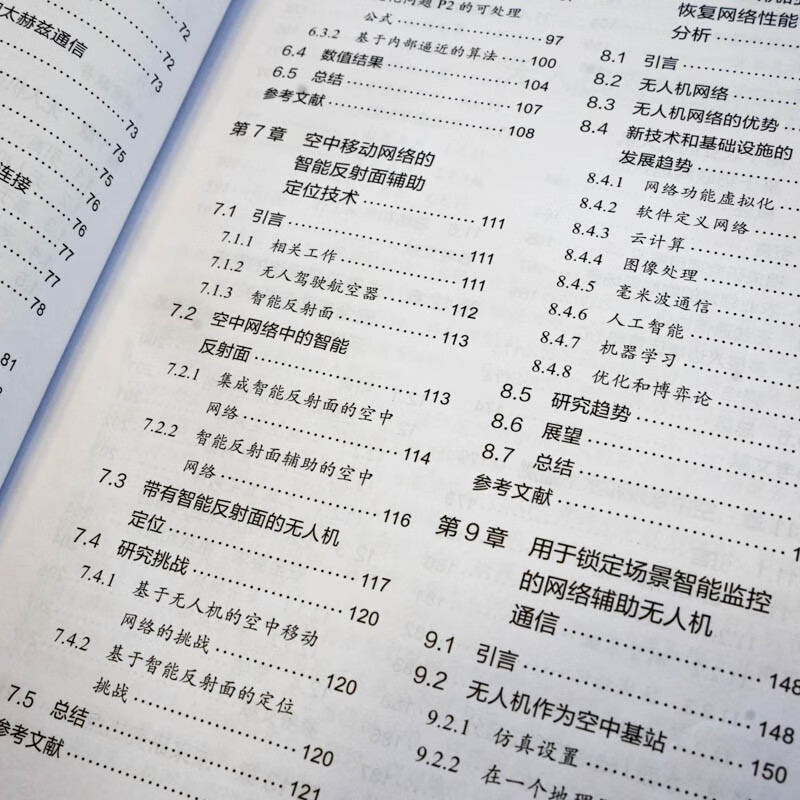 太赫兹通信
72
72
73
73
75
75
76
连接
76
77
77
78
81
82
问题 P2 的可处理
公式 97
6.3.2 基于内部逼近的算法 100
6.4 数值结果 104
6.5 总结 107
参考文献 108
第 7 章 空中移动网络的
智能反射面辅助
定位技术 111
7.1 引言 111
7.1.1 相关工作 111
7.1.2 无人驾驶航空器 112
7.1.3 智能反射面 113
7.2 空中网络中的智能
反射面 113
7.2.1 集成智能反射面的空中
网络 114
7.2.2 智能反射面辅助的空中
网络 116
7.3 带有智能反射面的无人机
定位 117
7.4 研究挑战 120
7.4.1 基于无人机的空中移动
网络的挑战 120
7.4.2 基于智能反射面的定位
挑战 120
7.5 总结 121
参考文献
恢复网络性能
分析
8.1 引言
8.2 无人机网络
8.3 无人机网络的优势
8.4 新技术和基础设施的
发展趋势
8.4.1 网络功能虚拟化
8.4.2 软件定义网络
8.4.3 云计算
8.4.4 图像处理
8.4.5 毫米波通信
8.4.6 人工智能
8.4.7 机器学习
8.4.8 优化和博弈论
8.5 研究趋势
8.6 展望
8.7 总结
参考文献
第 9 章 用于锁定场景智能监控
的网络辅助无人机
通信 148
9.1 引言 148
9.2 无人机作为空中基站 150
9.2.1 仿真设置
9.2.2 在一个地理